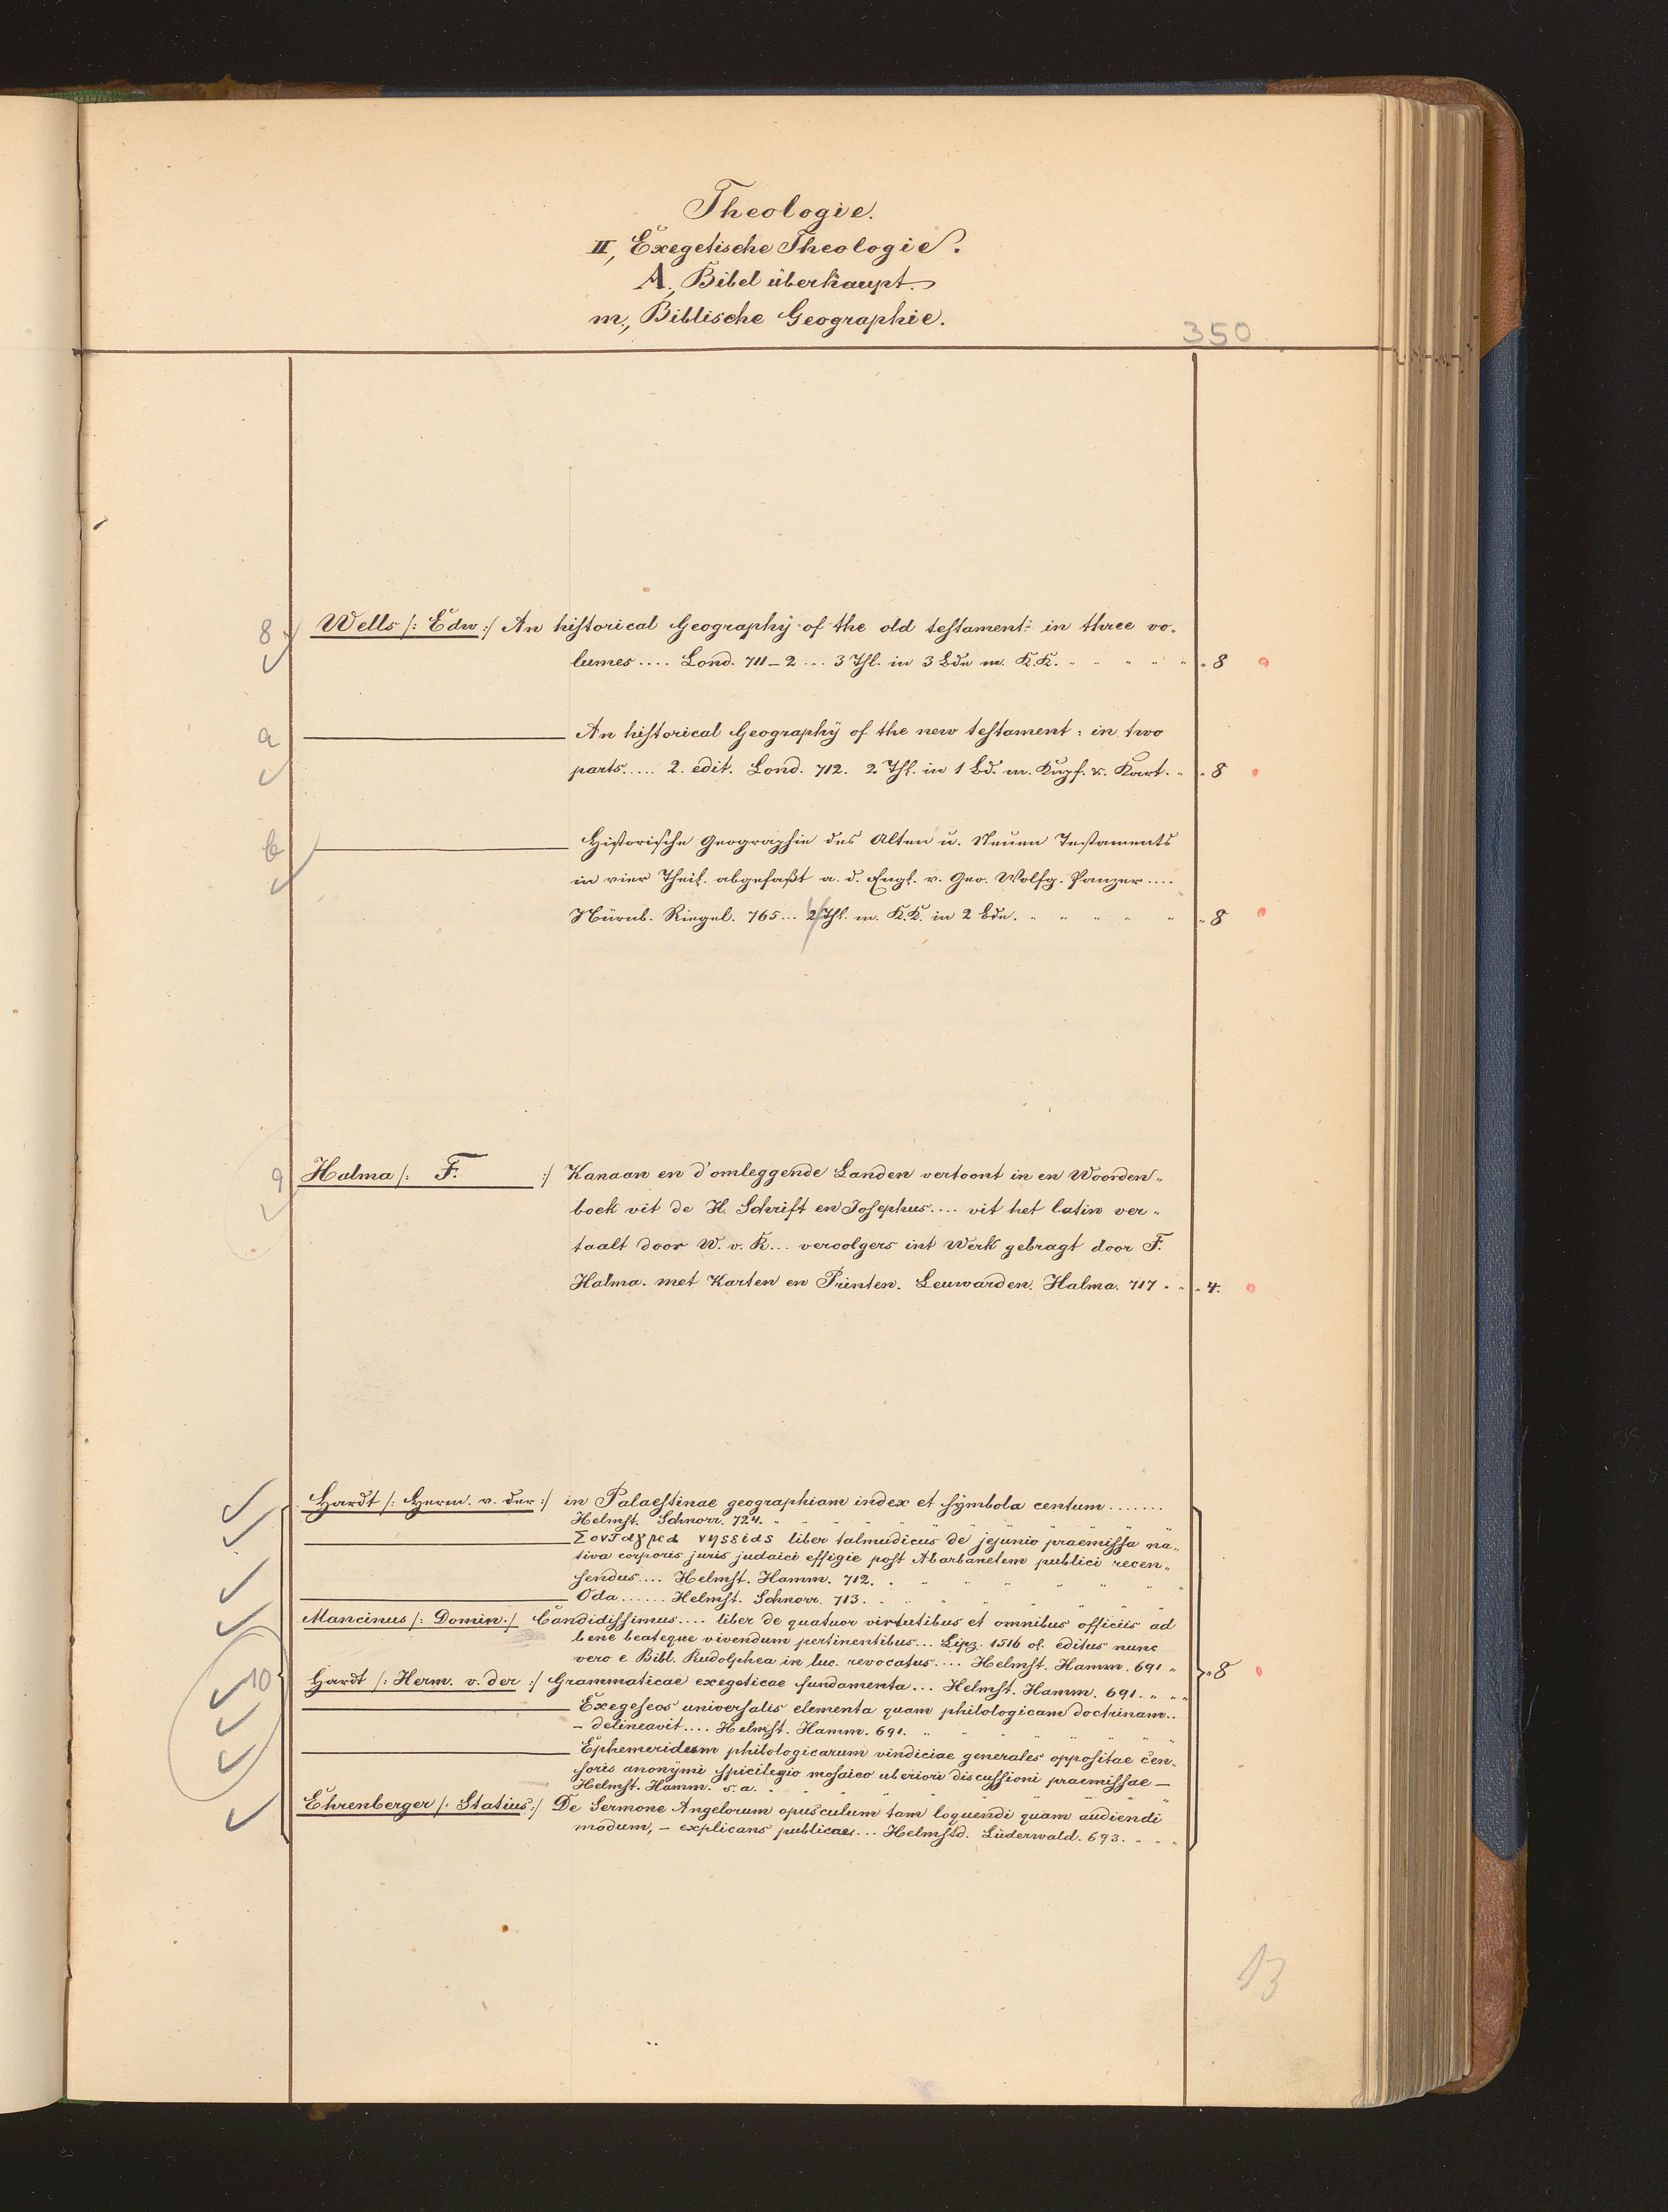 Theologie.
II, Exegetische Theologie.
A., Bibel überhaupt.
m., Biblische Geographie.
350
8 Wells /: Edw :/ An historical Geography of the old testament: in three vo-
lumes .... Lond. 711–2 ... 3 Thl. in 3 Bdn m. K.K. " " " " " 8
a An historical Geography of the new testament: in two
parts..... 2. edit. Lond. 712. 2 Thl. in 1 Bd. m. Kupf. u. Kart. " " 8
b Historische Geographie des Alten u. Neuen Testaments
in vier Theil. abgefaßt a. d. Engl. v. Geo. Wolfg. Panzer ....
Nürnb. Riegel. 765 ... 2 Thl. m. K.K. in 2 Bdn. " " " " " 8
9 Halma /: F. :/ Kanaan en d'omleggende Landen vertoont in en Woorden-
boek vit de H. Schrift en Josephus .... vit het latin ver-
taalt door W. v. K... veroolgers int Werk gebragt door F.
Halma. met Karten en Printen. Leuwarden. Halma. 717 " " 4.
Hardt /: Herm. v. der :/ in Palaestinae geographiam index et symbola centum .......
Helmst. Schnorr. 724. " " " " "
liber talmudicus de jejunio praemissa na-
tiva corporis juris judaici effigie post Abarbanelem publici recen-
sendus .... Helmst. Hamm. 712. " " " " "
Oda ....... Helmst. Schnorr. 713. " " " " "
Mancinus /: Domin. / Candidissimus .... liber de quatuor virtutibus et omnibus officiis ad
bene beateque vivendum pertinentibus ... Lipz. 1516 ol. editus nunc
vero e Bibl. Rudolphea in luc. revocatus .... Helmst. Hamm. 691 " " 8
10 Hardt /: Herm. v. der :/ Grammaticae exegeticae fundamenta ... Helmst. Hamm. 691. " " "
Exegeseos universalis elementa quam philologicam doctrinam..
– delineavit .... Helmst. Hamm. 691. " " "
Ephemeridum philologicarum vindiciae generales oppositae cen-
soris anonymi spicilegio mosaico uberiori discussioni praemissae –
Helmst. Hamm. s. a. " " " "
Ehrenberger /: Statius :/ De Sermone Angelorum opusculum tam loquendi quam audiendi
modum, – explicans publicae ... Helmstd. Lüderwald. 693. " " "
13